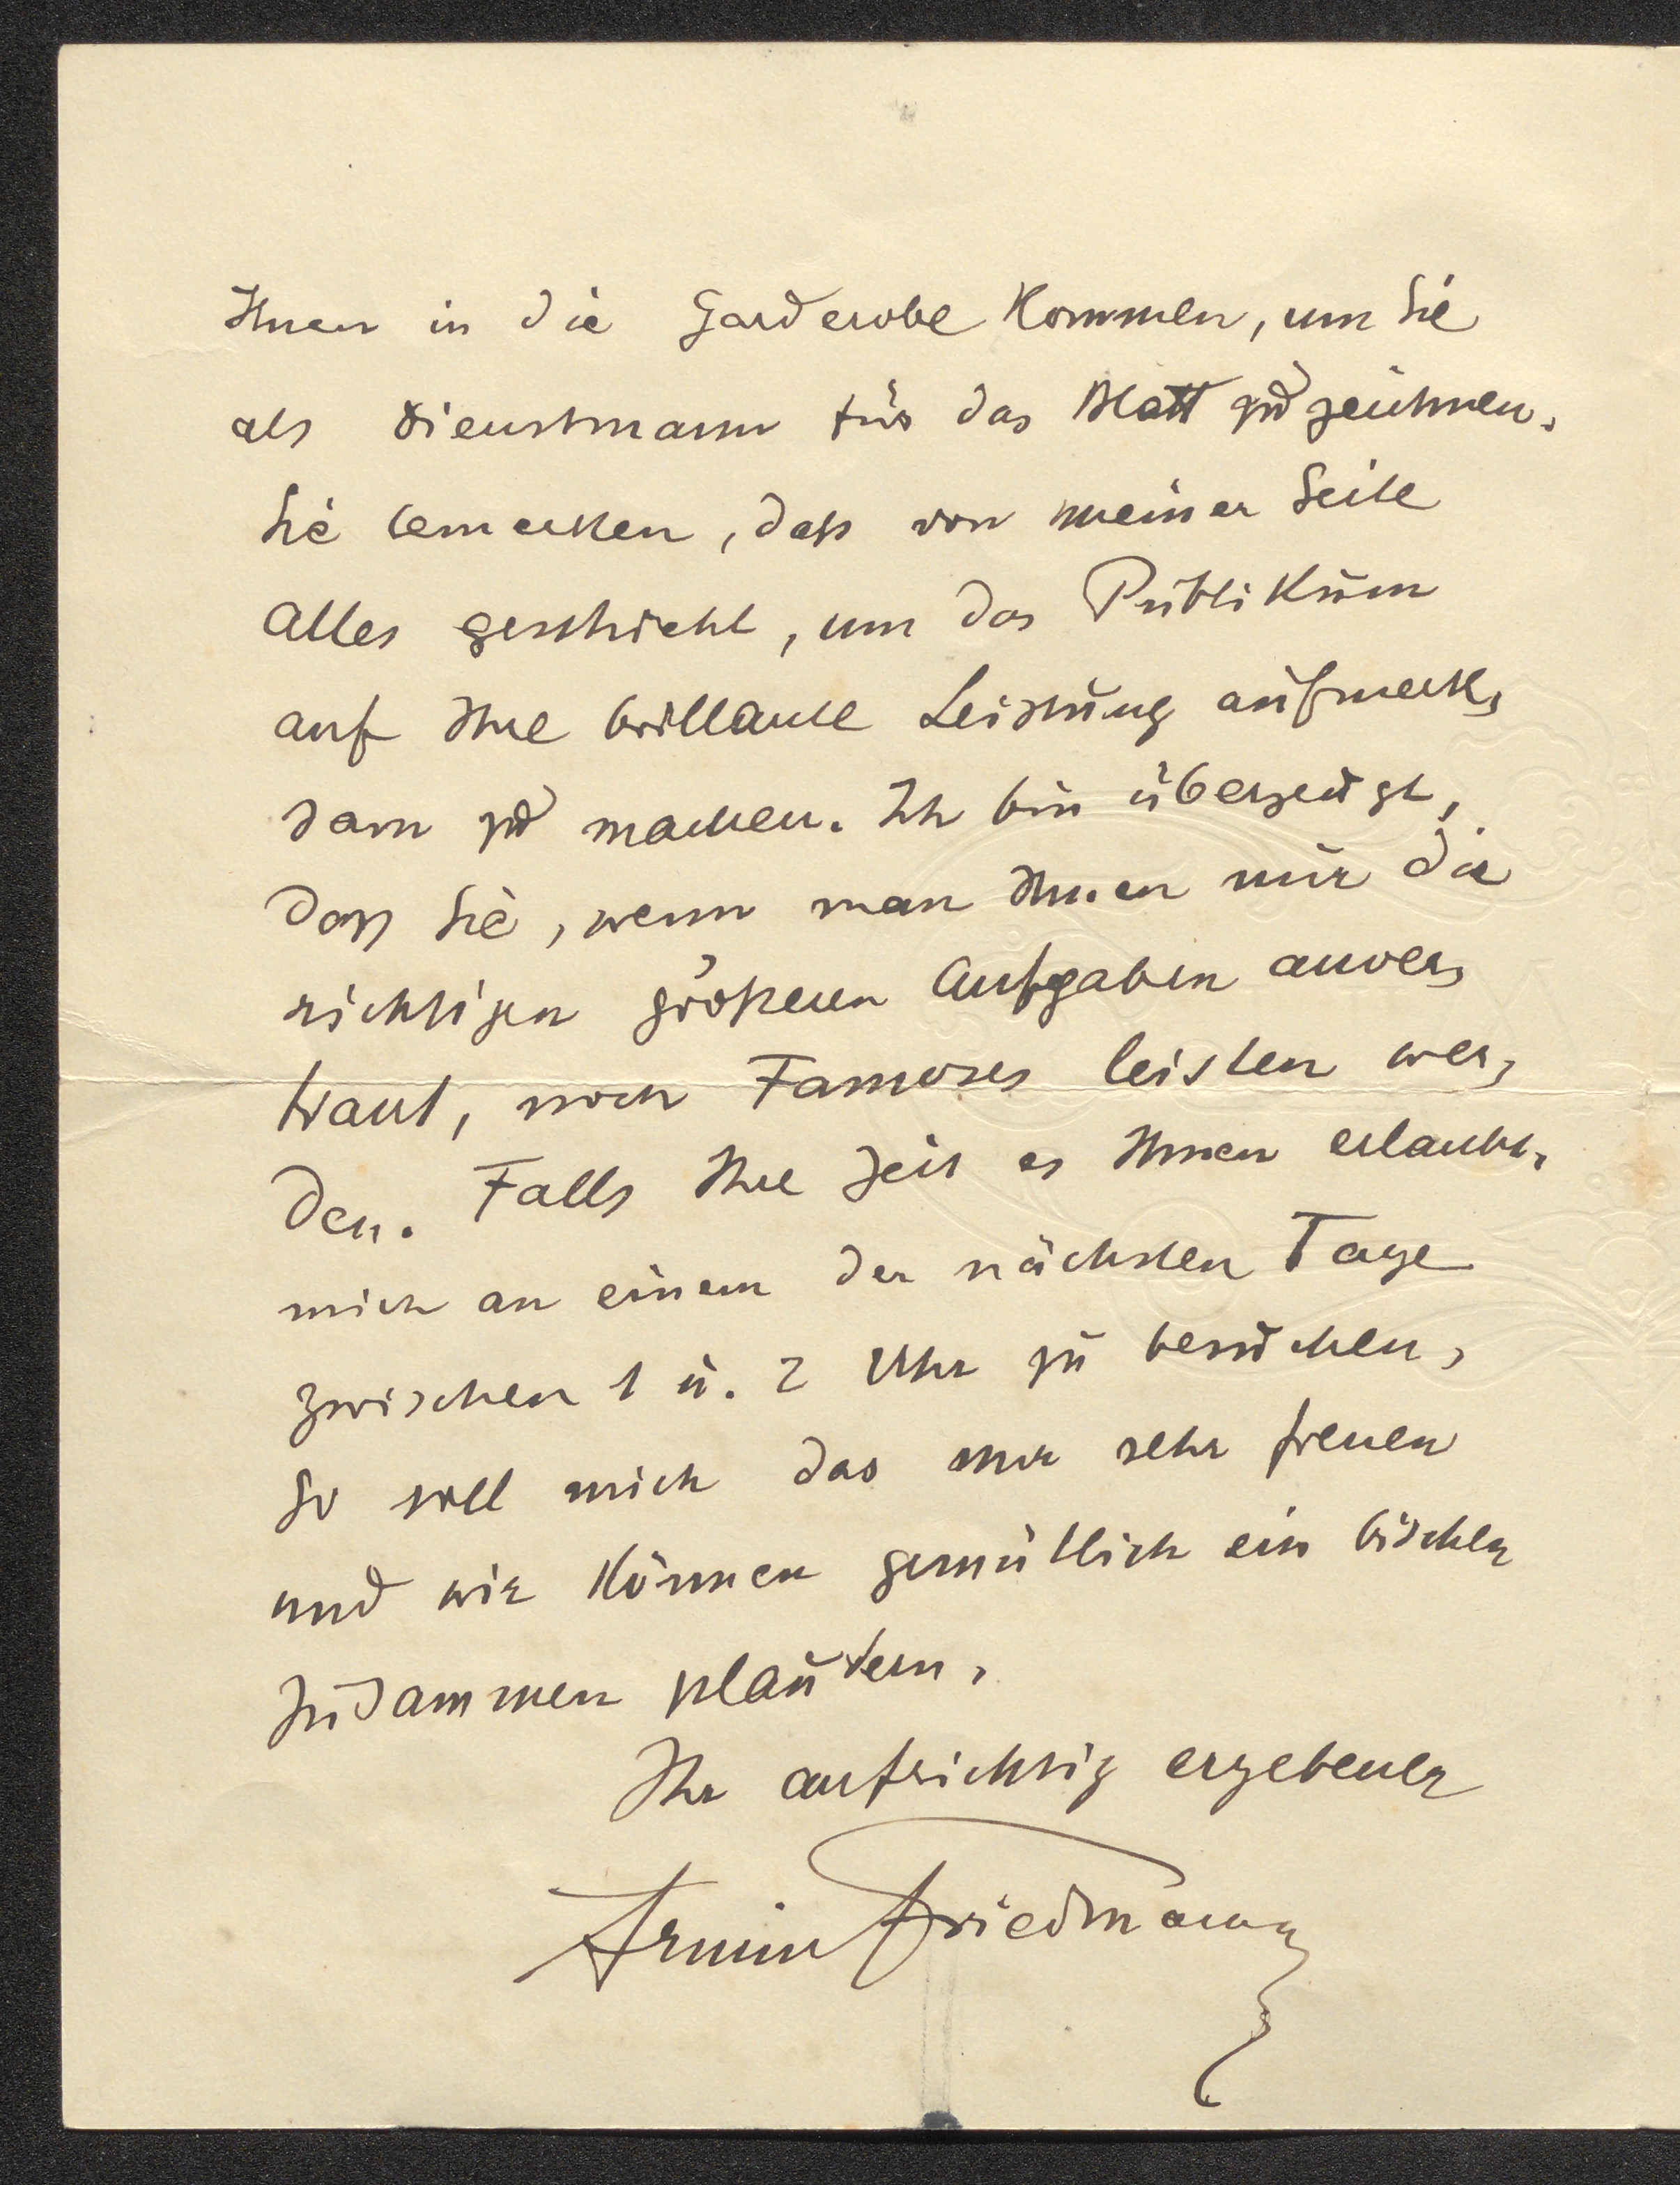 Ihnen in die Garderobe kommen, um Sie
als Dienstmann für das Blatt zu zeichnen.
Sie bemerken, daß von meiner Seite
alles geschieht, um das Publikum
auf Ihre brillante Leistung aufmerk-
sam zu machen. Ich bin überzeugt,
daß Sie, wenn man Ihnen nur die
richtigen größeren Aufgaben anver-
traut, noch Famoses leisten wer-
den. Falls Ihre Zeit es Ihnen erlaubt,
mich an einem der nächsten Tage
zwischen 1 u. 2 Uhr zu besuchen,
so soll mich das nur sehr freuen
und wir können gemütlich ein bischen
zusammen plaudern.
Ihr aufrichtig ergebener
Armin Friedmann